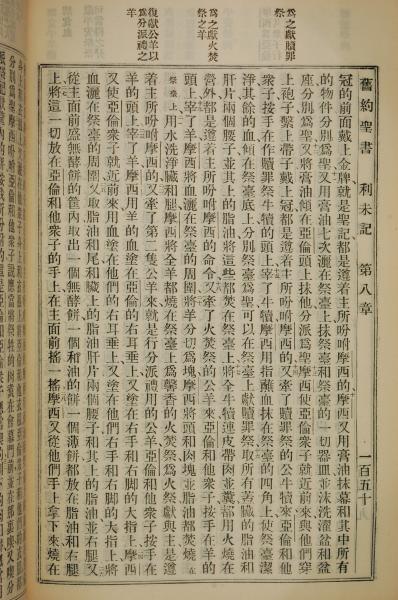 為之獻贖罪
祭之
為之獻火焚
祭之羊
復獻公羊以
為分派禮之
羊
舊約聖書 利未記 第八章 一百五十八
冠的前面戴上金牌就是聖記都是遵着主所吩咐摩西的摩西又用膏油抹幕和其中所有
的物件分別為聖又用膏油七次灑在祭臺上抹祭臺和祭臺的一切器皿並沐洗濯盆和盆
座分別為聖又將膏油傾在亞倫頭上抹他分派為聖摩西使亞倫衆子就近前來與他們穿
上袍子繫上帶子戴上冠都是遵着主所吩咐摩西的又牽了贖罪祭的公牛犢來亞倫和他
衆子按手在作贖罪祭牛犢的頭上宰了牛犢摩西用指蘸血抹在祭臺的四角上使祭臺潔
淨其餘的血傾在祭臺底上分別祭臺為聖可以在祭臺上獻贖罪祭取所有蓋臟的脂油和
肝片兩個腰子並其上的脂油將這些都焚在祭臺上將全牛犢連皮帶肉並糞都用火燒在
營外都是遵着主所吩咐摩西的命令又牽了火焚祭的公羊來亞倫和他衆子按手在羊的
頭上宰了羊摩西將血灑在祭臺的周圍將羊分切為塊摩西將頭和肉塊並脂油都焚燒在
祭臺上用水洗淨臟和腿摩西將全羊都燒在祭臺上為馨香的火焚祭為火祭獻與主是遵
着主所吩咐摩西的又牽了第二隻公羊來就是行分派禮用的公羊亞倫和他衆子按手在
羊的頭上宰了羊摩西用羊的血塗在亞倫的右耳垂上又塗在右手和右脚的大指上摩西
又使亞倫衆子就近前來用血塗在他們的右耳垂上又塗在他們右手和右脚的大指上將
血灑在祭臺的周圍又取脂油和尾和臟上的脂油肝片兩個腰子和其上的脂油並右腿又
從主面前盛無酵餅的筐內取出一個無酵餅一個和油的餅一個薄餅都放在脂油和右腿
上將這一切放在亞倫和他衆子的手上在主面前搖一搖摩西又從他們手上拿下來燒在